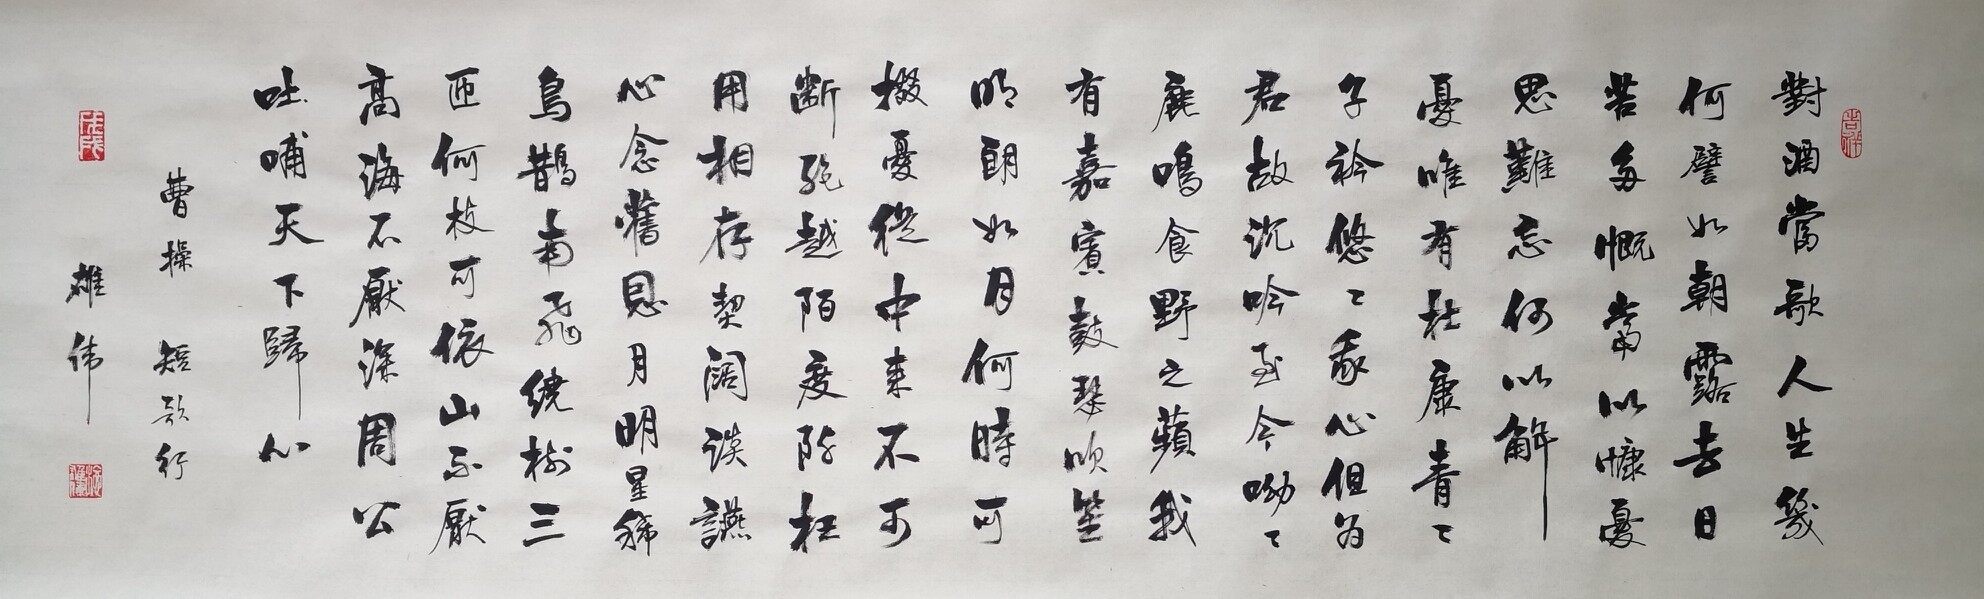 吉祥
對酒當歌人生幾
何譬如朝露去日
苦多慨當以慷憂
思難忘何以解
憂唯有杜康青〻
子衿悠〻我心但为
君故沉吟至今呦〻
鹿鳴食野之蘋我
有嘉賓鼓瑟吹笙
明朗如月何時可
掇憂從中来不可
断绝越陌度阡枉
用相存契阔談讌
心念舊恩月明星稀
烏鵲南飛繞樹三
匝何枝可依山不厭
高海不厭深周公
吐哺天下歸心
曹操 短歌行
雄伟